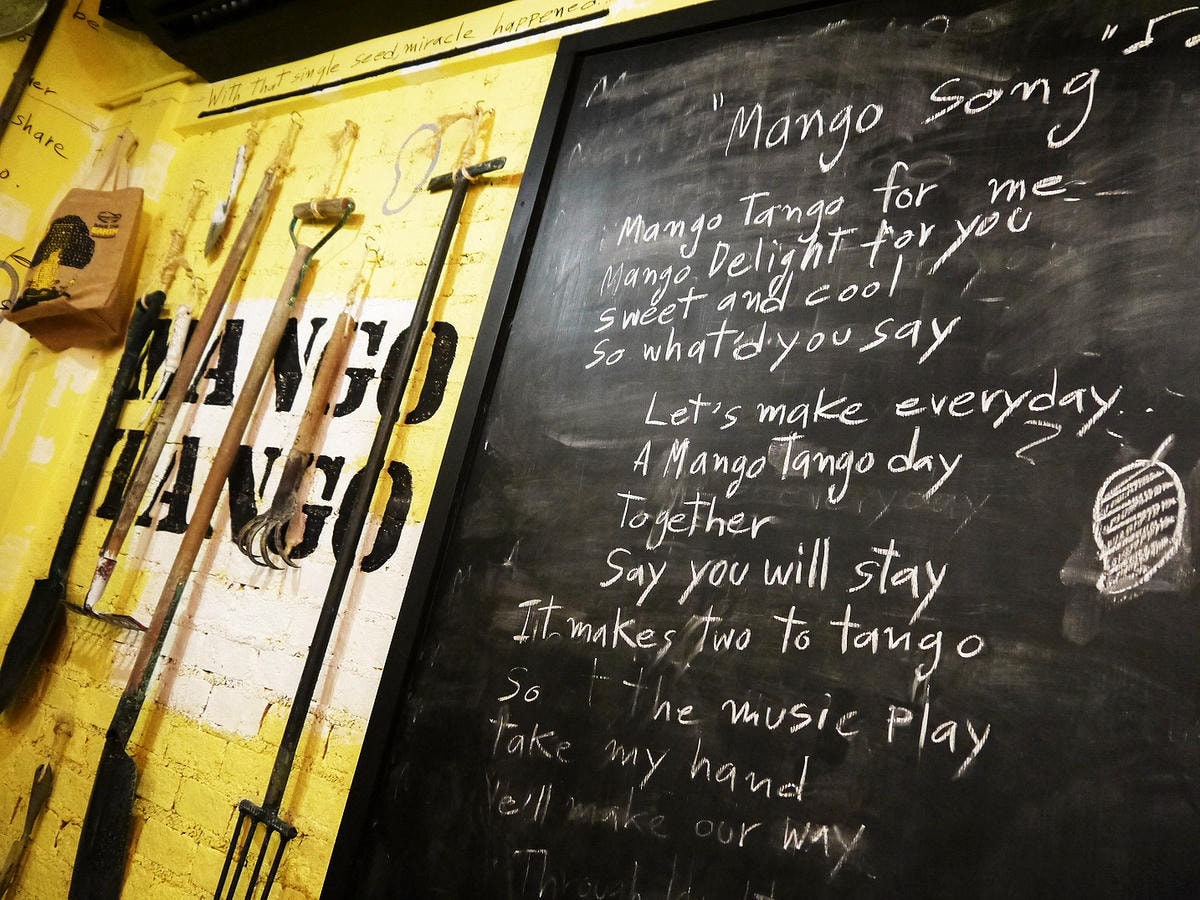 be
share
With that single seed, miracle happened...
MANGO
TANGO
"Mango Song"
Mango Tango for me
Mango Delight for you
sweet and cool
So what'd you say
Let's make everyday..
A Mango Tango day
Together
Say you will stay
It makes two to tango
So the music play
Take my hand
e'll make our way
Through